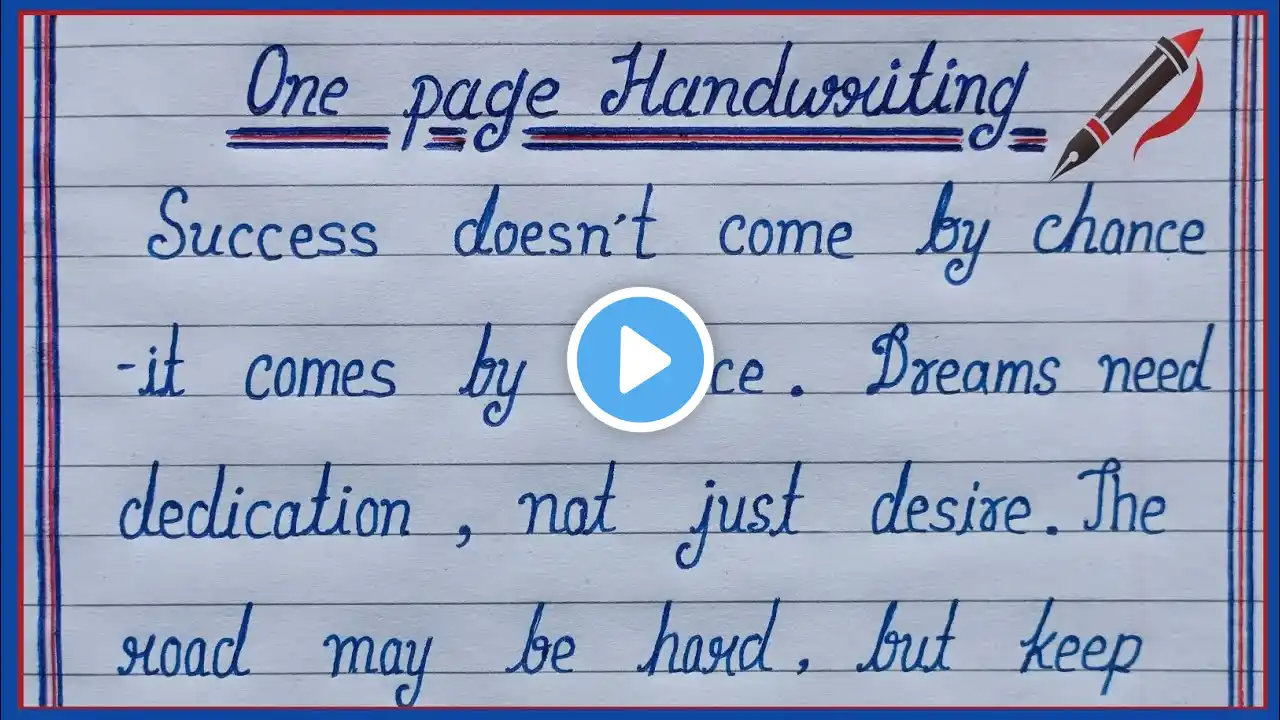 One page Handwriting
Success doesn't come by chance
-it comes by ce. Dreams need
dedication, not just desire. The
road may be hard, but keep